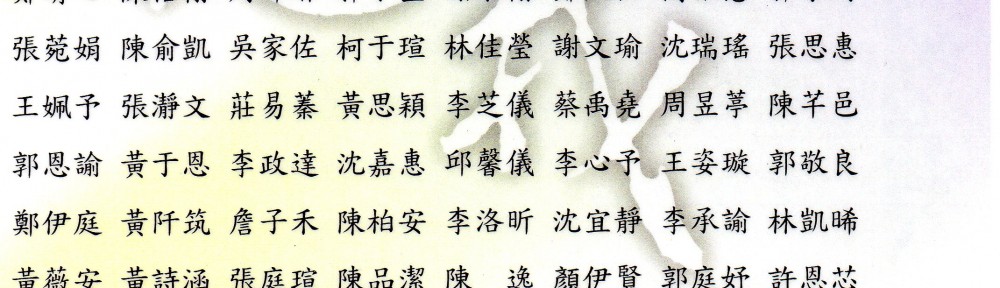 張菀娟 陳俞凱 吳家佐 柯于瑄 林佳瑩 謝文瑜 沈瑞瑤 張思惠
王姵予 張瀞文 莊易蓁 黃思穎 李芝儀 蔡禹堯 周昱葶 陳芊邑
郭恩諭 黃于恩 李政達 沈嘉惠 邱馨儀 李心予 王姿璇 郭敬良
鄭伊庭 黃阡筑 詹子禾 陳柏安 李洛昕 沈宜靜 李承諭 林凱晞
黃薇安 黃詩涵 張庭瑄 陳品潔 陳 逸 顏伊賢 郭庭妤 許恩芯